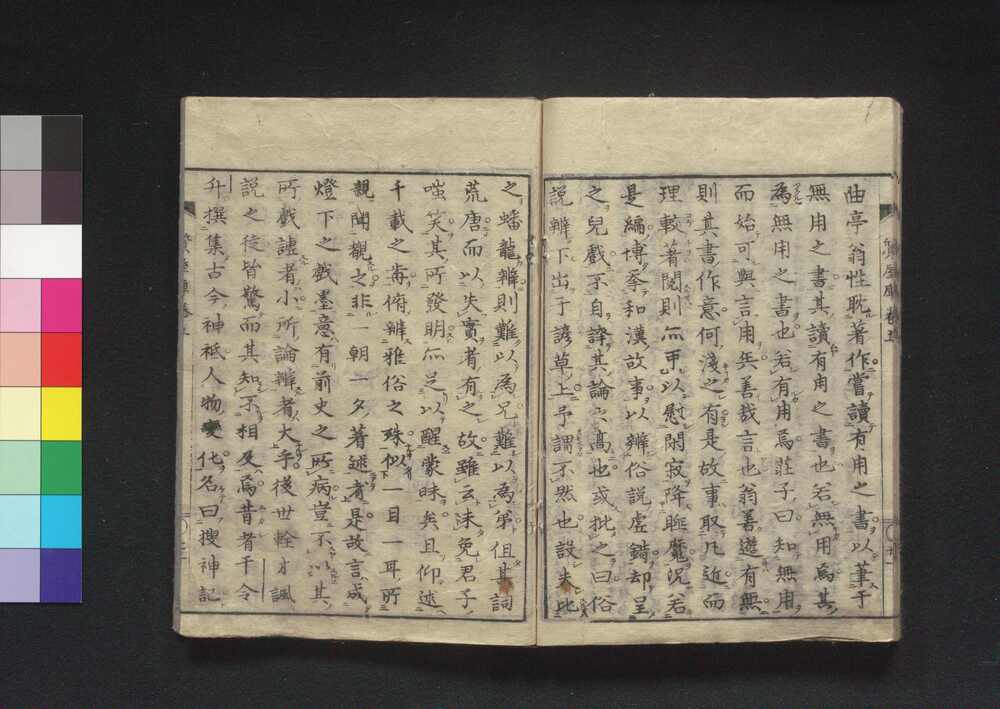 曲亭翁性耽著作嘗讀有用之書以筆于
無用之書其讀有用之書也若無用焉其
為無用之書也若有用焉莊子曰知無用
而始可與言用矣善哉言也翁善遊有無
則其書作意何淺之有是故事取凡近而
理較著閱則而以慰閑寂降睡魔況若
是編博和漢故事以辨俗說虛錯却呈
之兒戲不自誇其論之高也或批之曰俗
說辨下出于諺草上予謂不然也設夫比
之蟠龍辨則難以為兄難以為弟但其詞
荒唐而以失實者有之故雖云未免君子
嗤笑其所發明而足以醒蒙昧矣且仰述
千載之壽俯辨雅俗之殊似一目一耳所
親聞觀之非一朝一夕著述者是故言成
燈下之戲墨意有前史之所病豈不以其
所戲謔者小所論辨者大乎後世輇才諷
說之徒皆驚而其知不相及焉昔者干令
升撰集古今神祇人物變化名曰搜神記